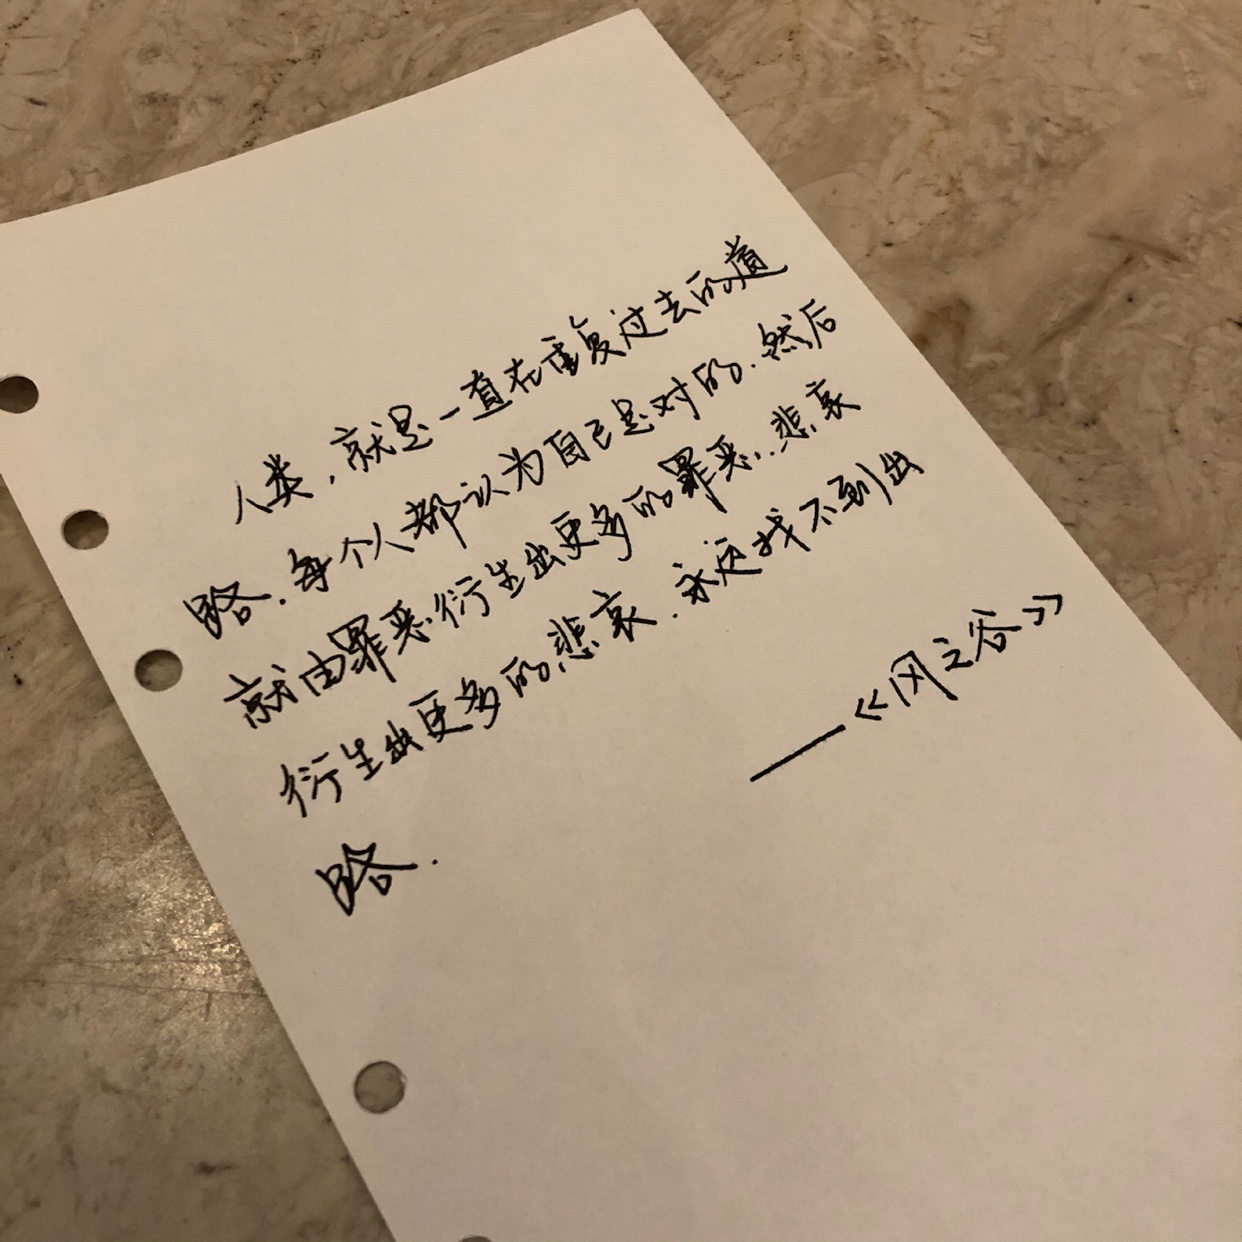 人类，就是一直在重复过去的道
路.每个人都认为自己是对的.然后
就由罪恶衍生出更多的罪恶.悲哀
衍生出更多的悲哀.永远找不到出
路.
——《风之谷》